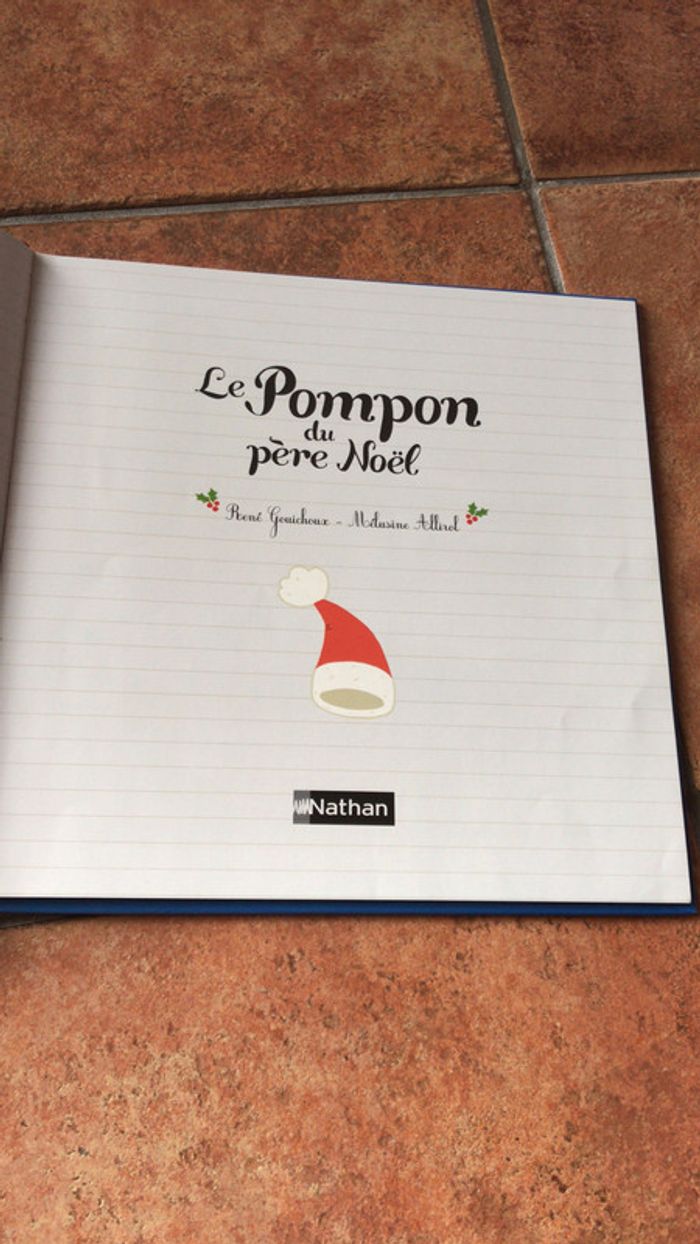 Le Pompon
du
père Noël
René Gouichoux - Mélusine Allirol
Nathan